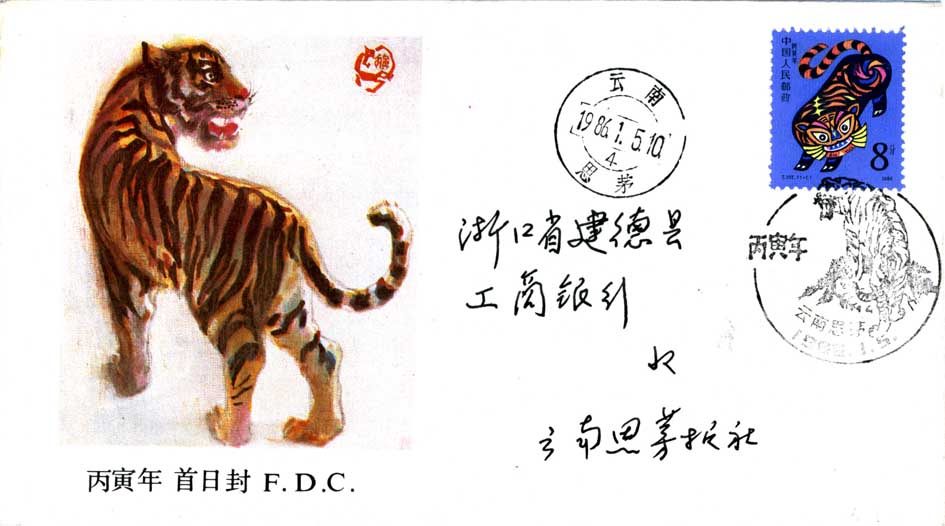 云南
1986.1.5.10
4
思茅
丙寅年
中国人民邮政
8分
T.107.(1-1)
1986
丙寅年
云南思茅
1986.1.5.
浙江省建德县
工商银行
云南思茅报社
丙寅年 首日封 F.D.C.